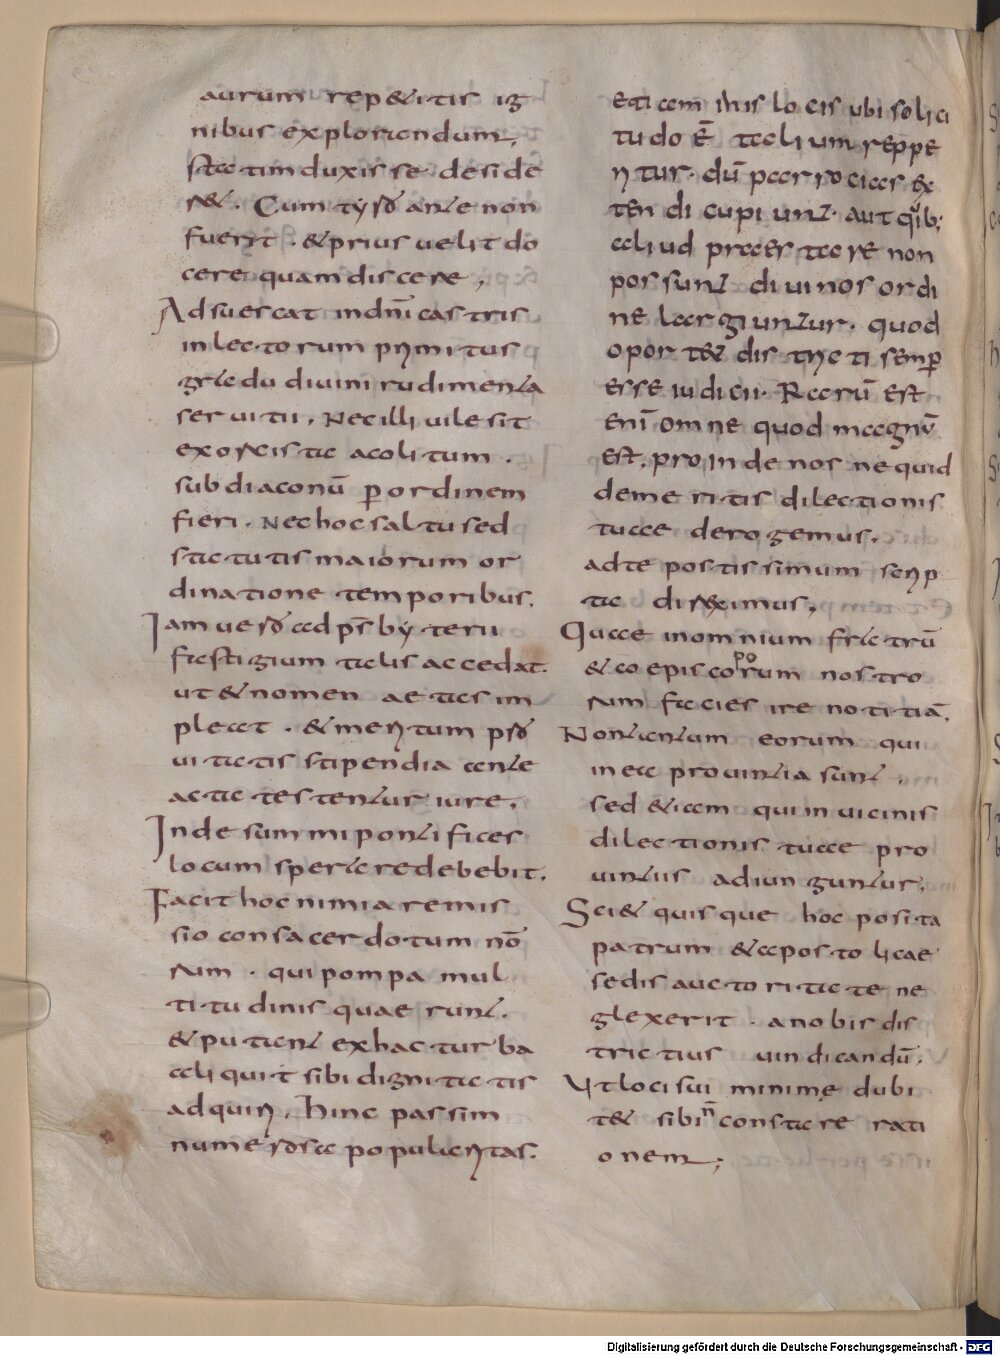 aurum repetitis ig
nibus explorandum,
statim duxisse deside
ret. Cum tyro ante non
fuerit. & prius uelit do
cere quam discere,
Adsuescat in dnĩ castris
in lectorum primitus
gradu diuini rudimenta
seruitii. Nec illi uile sit
exorcista acolitum.
subdiaconũ ꝑ ordinem
fieri. Nec hoc saltu sed
statutis maiorum or
dinatione temporibus.
Iam uero ad ps̄byterii
fastigium talis accedat.
ut & nomen aetas im
pleat. & meritum pro
uitatis stipendia ante
actatestentur iure.
Inde summi pontifices
locum sperare debebit.
Facit hoc nimia remis
sio consacerdotum nõ
rum. qui pompa mul
titudinis quaerunt.
& putant ex hac turba
aliquit sibi dignitatis
adquiri. hinc passim
numerosa popularitas.
etiam in his locis ubi solici
tudo ē talium reppe
ritur. dũ parrocias ex
tendi cupiunt. aut quib;
aliud praestare non
possunt diuinos ordi
ne largiuntur. quod
oportet districti semꝑ
esse iudicii. Rarũ est
enĩ omne quod magnũ
est, proinde nos ne quid
de meritis dilectionis
tuae derogemus.
ad te postissimum scrip
ta direximus,
Quae in omnium fratrũ
& coepiscoporum nostro
rum facies ire notitiã.
Non tantum eorum qui
in ea prouintia sunt.
sed etiam qui in uicinis
dilectionis tuae pro
uintiis adiunguntur.
Sciet quisque hoc posita
patrum & apostolicae
sedis auctoritate ne
glexerit. a nobis dis
trictius uindicandũ.
Ut loci sui minimę dubi
tet sibi n̄ constare rati
onem,;
Digitalisierung gefördert durch die Deutsche Forschungsgemeinschaft - DFG